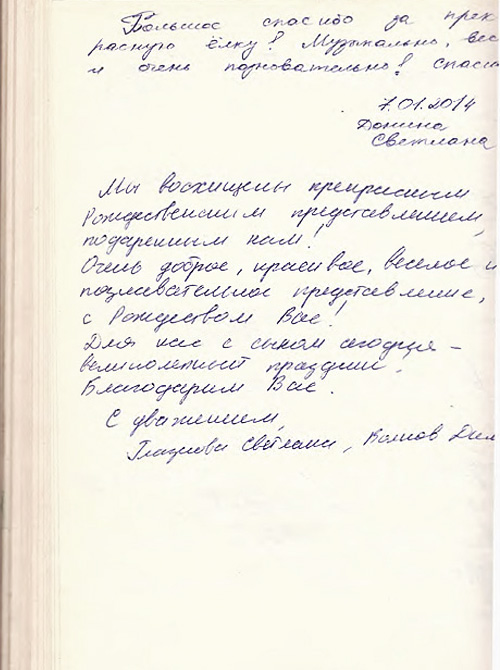 Большое спасибо за прек
расную ёлку! Музыкально, вес
и очень познавательно! Спаси
7.01.2014
Донина
Светлана
Мы восхищены прекрасным
Рождественским представлением,
подаренным нам!
Очень доброе, красивое, веселое и
познавательное представление,
с Рождеством Вас!
Для нас с сыном сегодня –
великолепный праздник.
Благодарим Вас.
С уважением,
Светлана, Волков